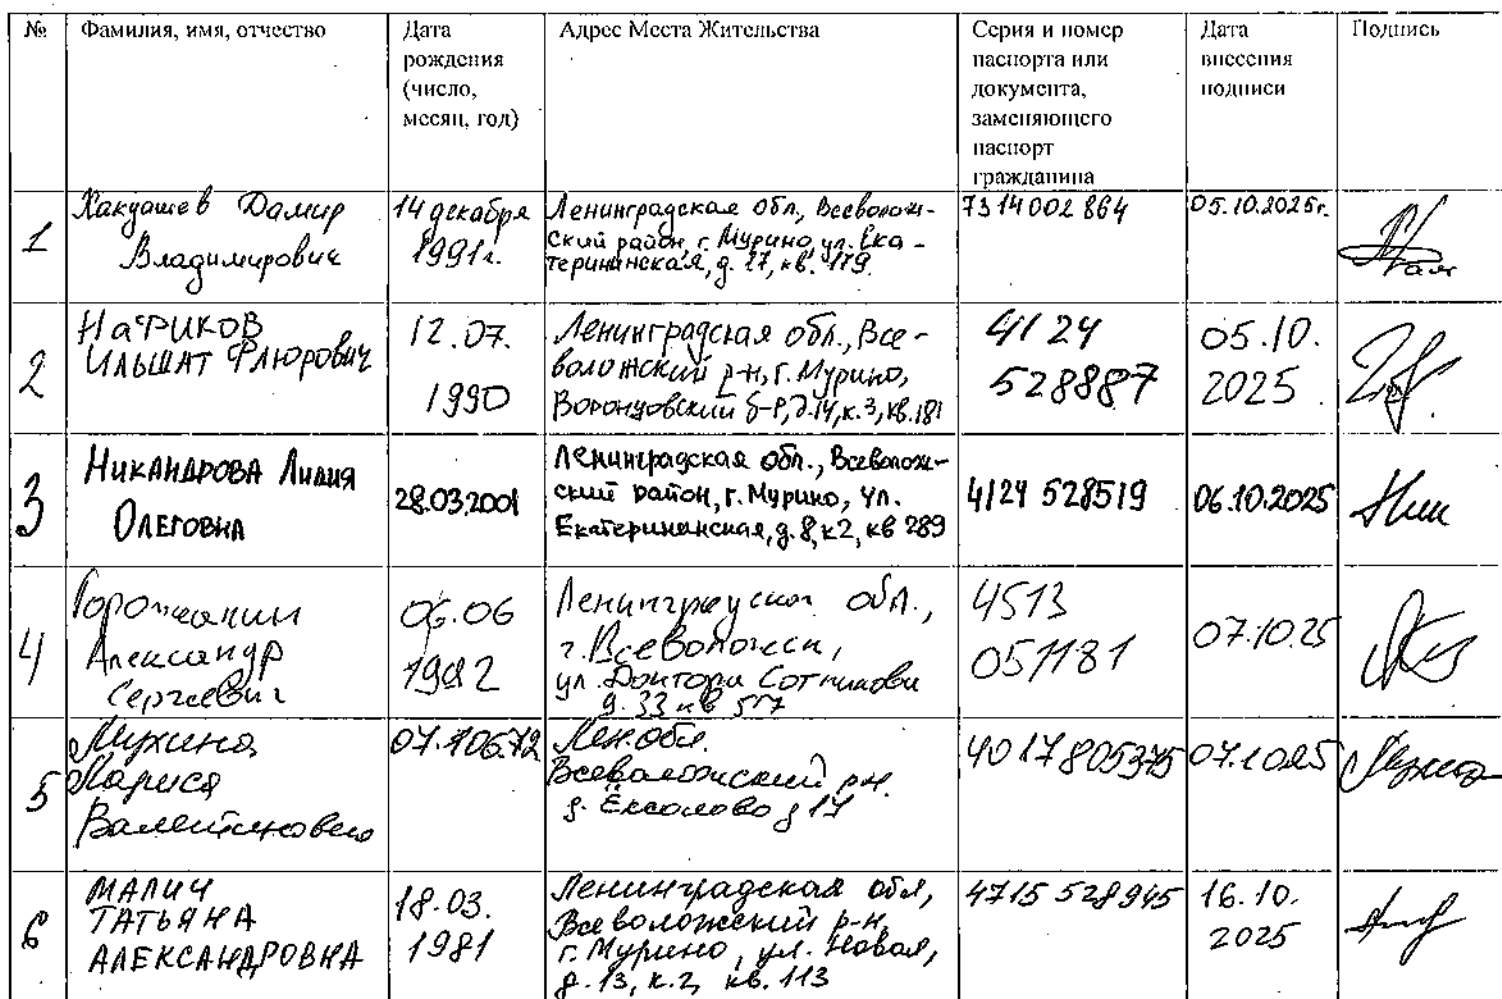 №
Фамилия, имя, отчество
Дата
рождения
(число,
месяц, год)
Адрес Места Жительства
Серия и номер
паспорта или
документа,
заменяющего
паспорт
гражданина
Дата
внесения
подписи
Подпись
1
Хакуашев Дамир
Владимирович
14 декабря
1991г.
Ленинградская обл., Всеволож-
ский район, г. Мурино, ул. Ека-
терининская, д. 17, кв. 179
7314002864
05.10.2025г.
2
Нафиков
Ильшат Флюрович
12.07.
1990
Ленинградская обл., Все-
воложский р-н, г. Мурино,
Воронцовский б-р, д.14, к.3, кв.181
4124
528887
05.10.
2025
3
Никандрова Лилия
Олеговна
28.03.2001
Ленинградская обл., Всеволож-
ский район, г. Мурино, ул.
Екатерининская, д. 8, к2, кв 289
4124 528519
06.10.2025
4
Горожанин
Александр
Сергеевич
06.06
Ленинградская обл.,
г. Всеволожск,
ул. Доктора Сотникова
д. 33 кв 517
4513
051181
07.10.25
5
Мухина
Лариса
Валентиновна
Лен.обл.
Всеволожский р-н.
д. Ёксолово д 17
4017805375
07.1025
6
МАЛИЧ
ТАТЬЯНА
АЛЕКСАНДРОВНА
18.03.
1981
Ленинградская обл,
Всеволожский р-н,
г. Мурино, ул. Новая,
д. 13, к. 2, кв. 113
4715 528945
16.10.
2025